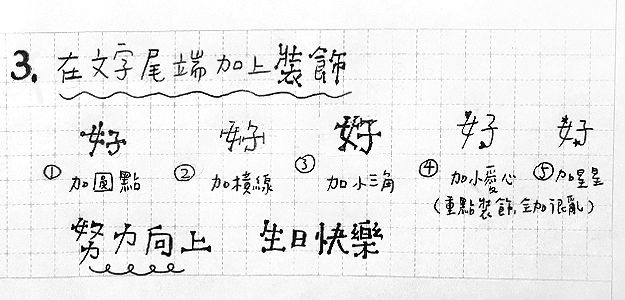 3. 在文字尾端加上裝飾
好 好 好 好 好
① 加圓點 ② 加橫線 ③ 加小三角 ④ 加小愛心 ⑤ 加星星
(重點裝飾,全加很亂)
努力向上 生日快樂